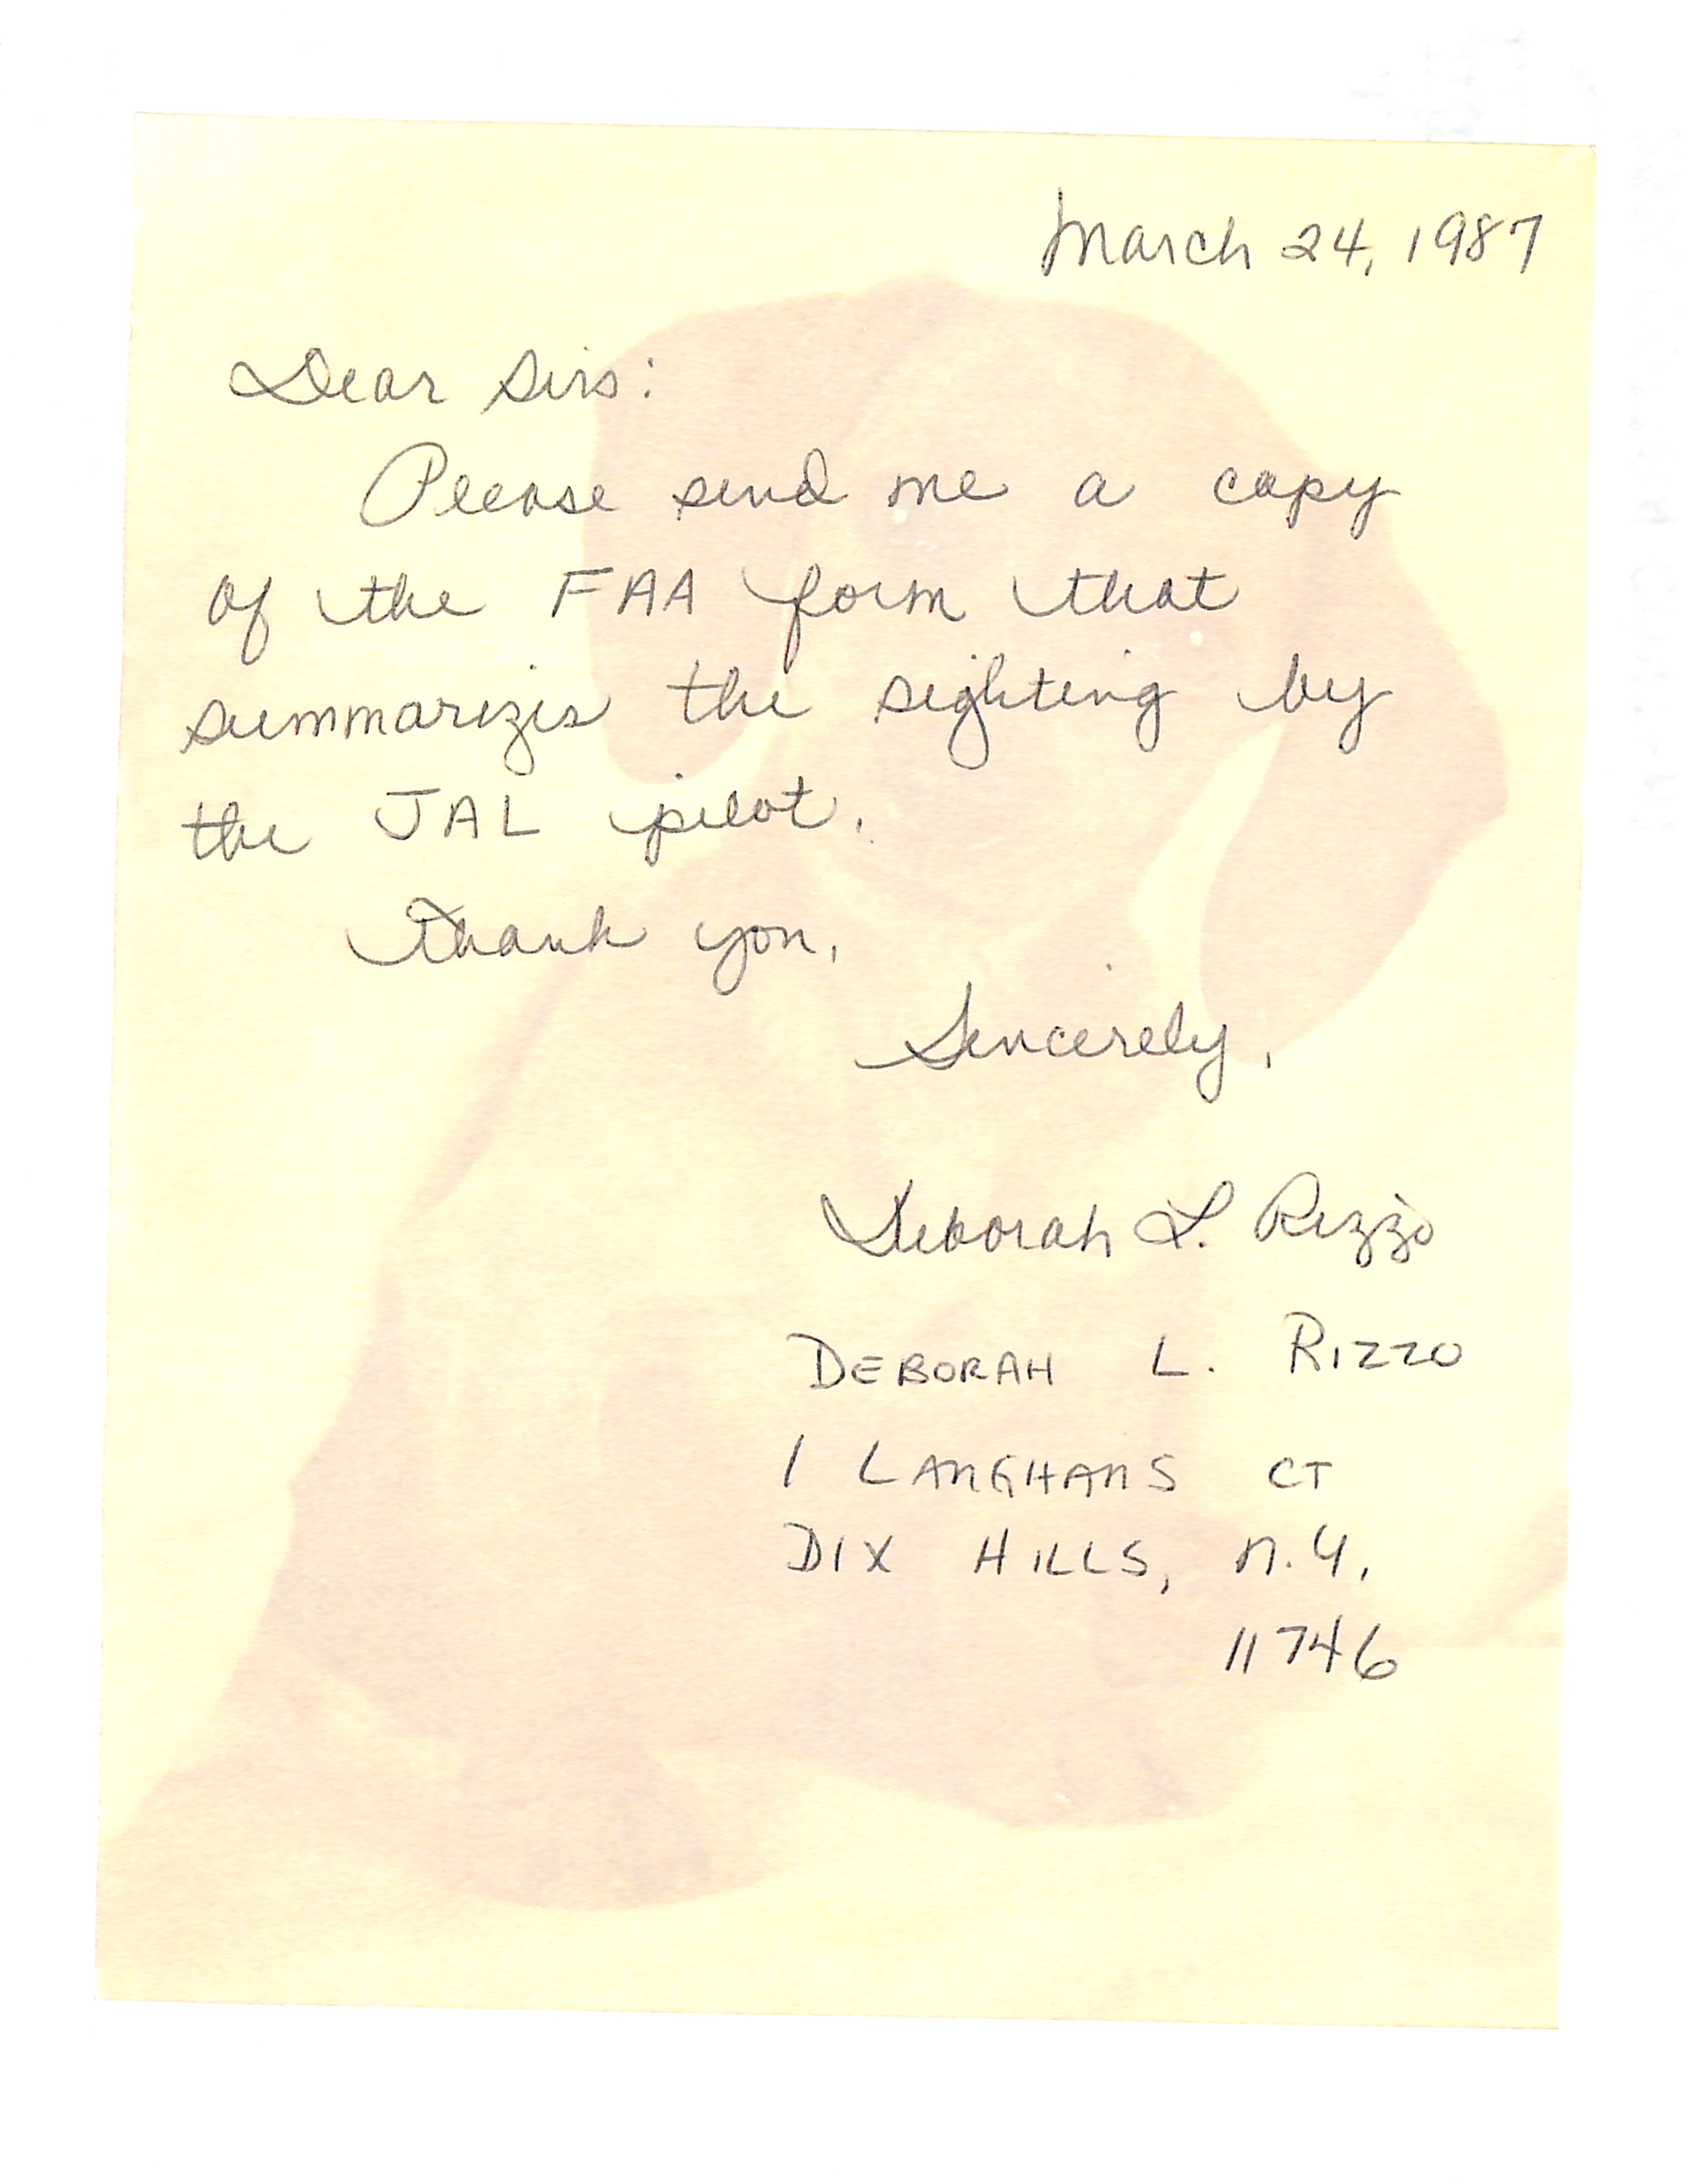 March 24, 1987
Dear Sirs:
Please send me a copy
of the FAA form that
summarizes the sighting by
the JAL pilot.
Thank you,
Sincerely,
Deborah L. Rizzo
DEBORAH L. RIZZO
1 LANGHANS CT
DIX HILLS, N.Y.
11746